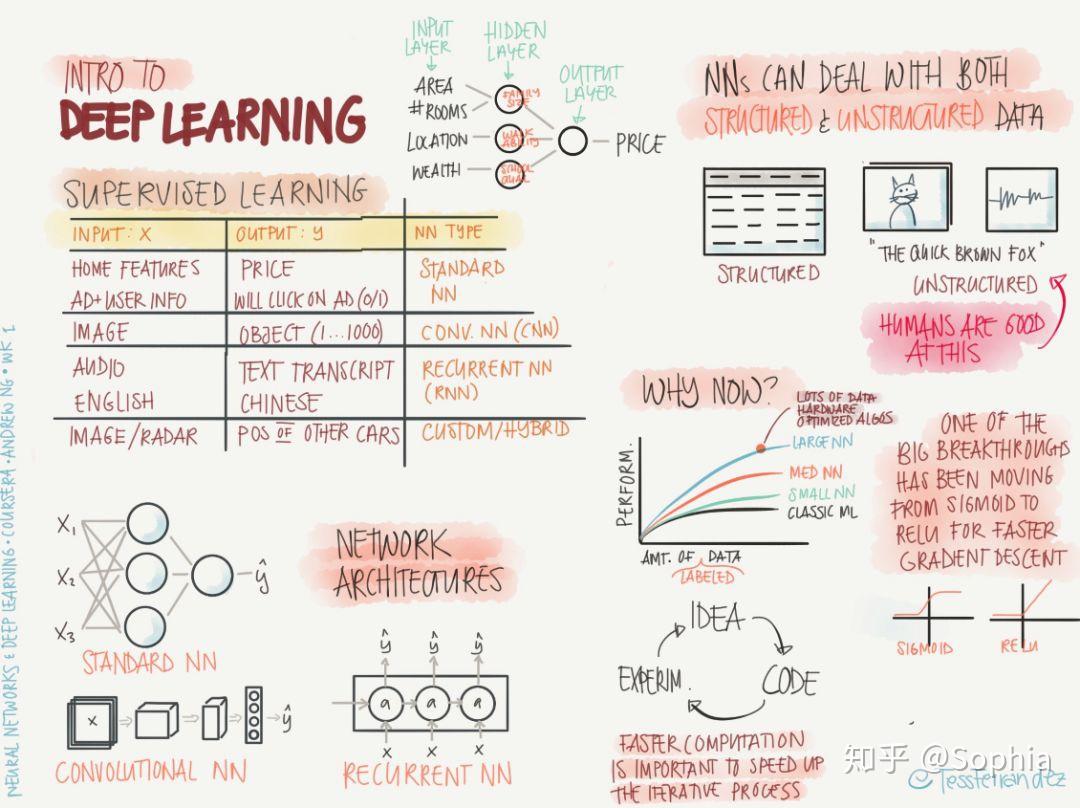 INTRO TO
DEEP LEARNING
INPUT LAYER
HIDDEN LAYER
OUTPUT LAYER
AREA
#ROOMS
LOCATION
WEALTH
FAMILY SIZE
WALK ABILITY
SCHOOL QUAL
PRICE
SUPERVISED LEARNING
INPUT: X OUTPUT: y NN TYPE
HOME FEATURES PRICE STANDARD
AD+USER INFO WILL CLICK ON AD (0/1) NN
IMAGE OBJECT (1...1000) CONV. NN (CNN)
AUDIO TEXT TRANSCRIPT RECURRENT NN
ENGLISH CHINESE (RNN)
IMAGE/RADAR POS OF OTHER CARS CUSTOM/HYBRID
NNs CAN DEAL WITH BOTH
STRUCTURED & UNSTRUCTURED DATA
STRUCTURED
"THE QUICK BROWN FOX"
UNSTRUCTURED
HUMANS ARE GOOD
AT THIS
WHY NOW?
LOTS OF DATA
HARDWARE
OPTIMIZED ALGOS
LARGE NN
MED NN
SMALL NN
CLASSIC ML
PERFORM.
AMT. OF DATA
LABELED
ONE OF THE
BIG BREAKTHROUGHS
HAS BEEN MOVING
FROM SIGMOID TO
RELU FOR FASTER
GRADIENT DESCENT
SIGMOID
RELU
IDEA
CODE
EXPERIM.
FASTER COMPUTATION
IS IMPORTANT TO SPEED UP
THE ITERATIVE PROCESS
NETWORK
ARCHITECTURES
X1
X2
X3
ŷ
STANDARD NN
X
ŷ
CONVOLUTIONAL NN
ŷ ŷ ŷ
a a a
X X X
RECURRENT NN
NEURAL NETWORKS & DEEP LEARNING • COURSERA • ANDREW NG • WK 1
知乎 @Sophia
@TessFerrandez